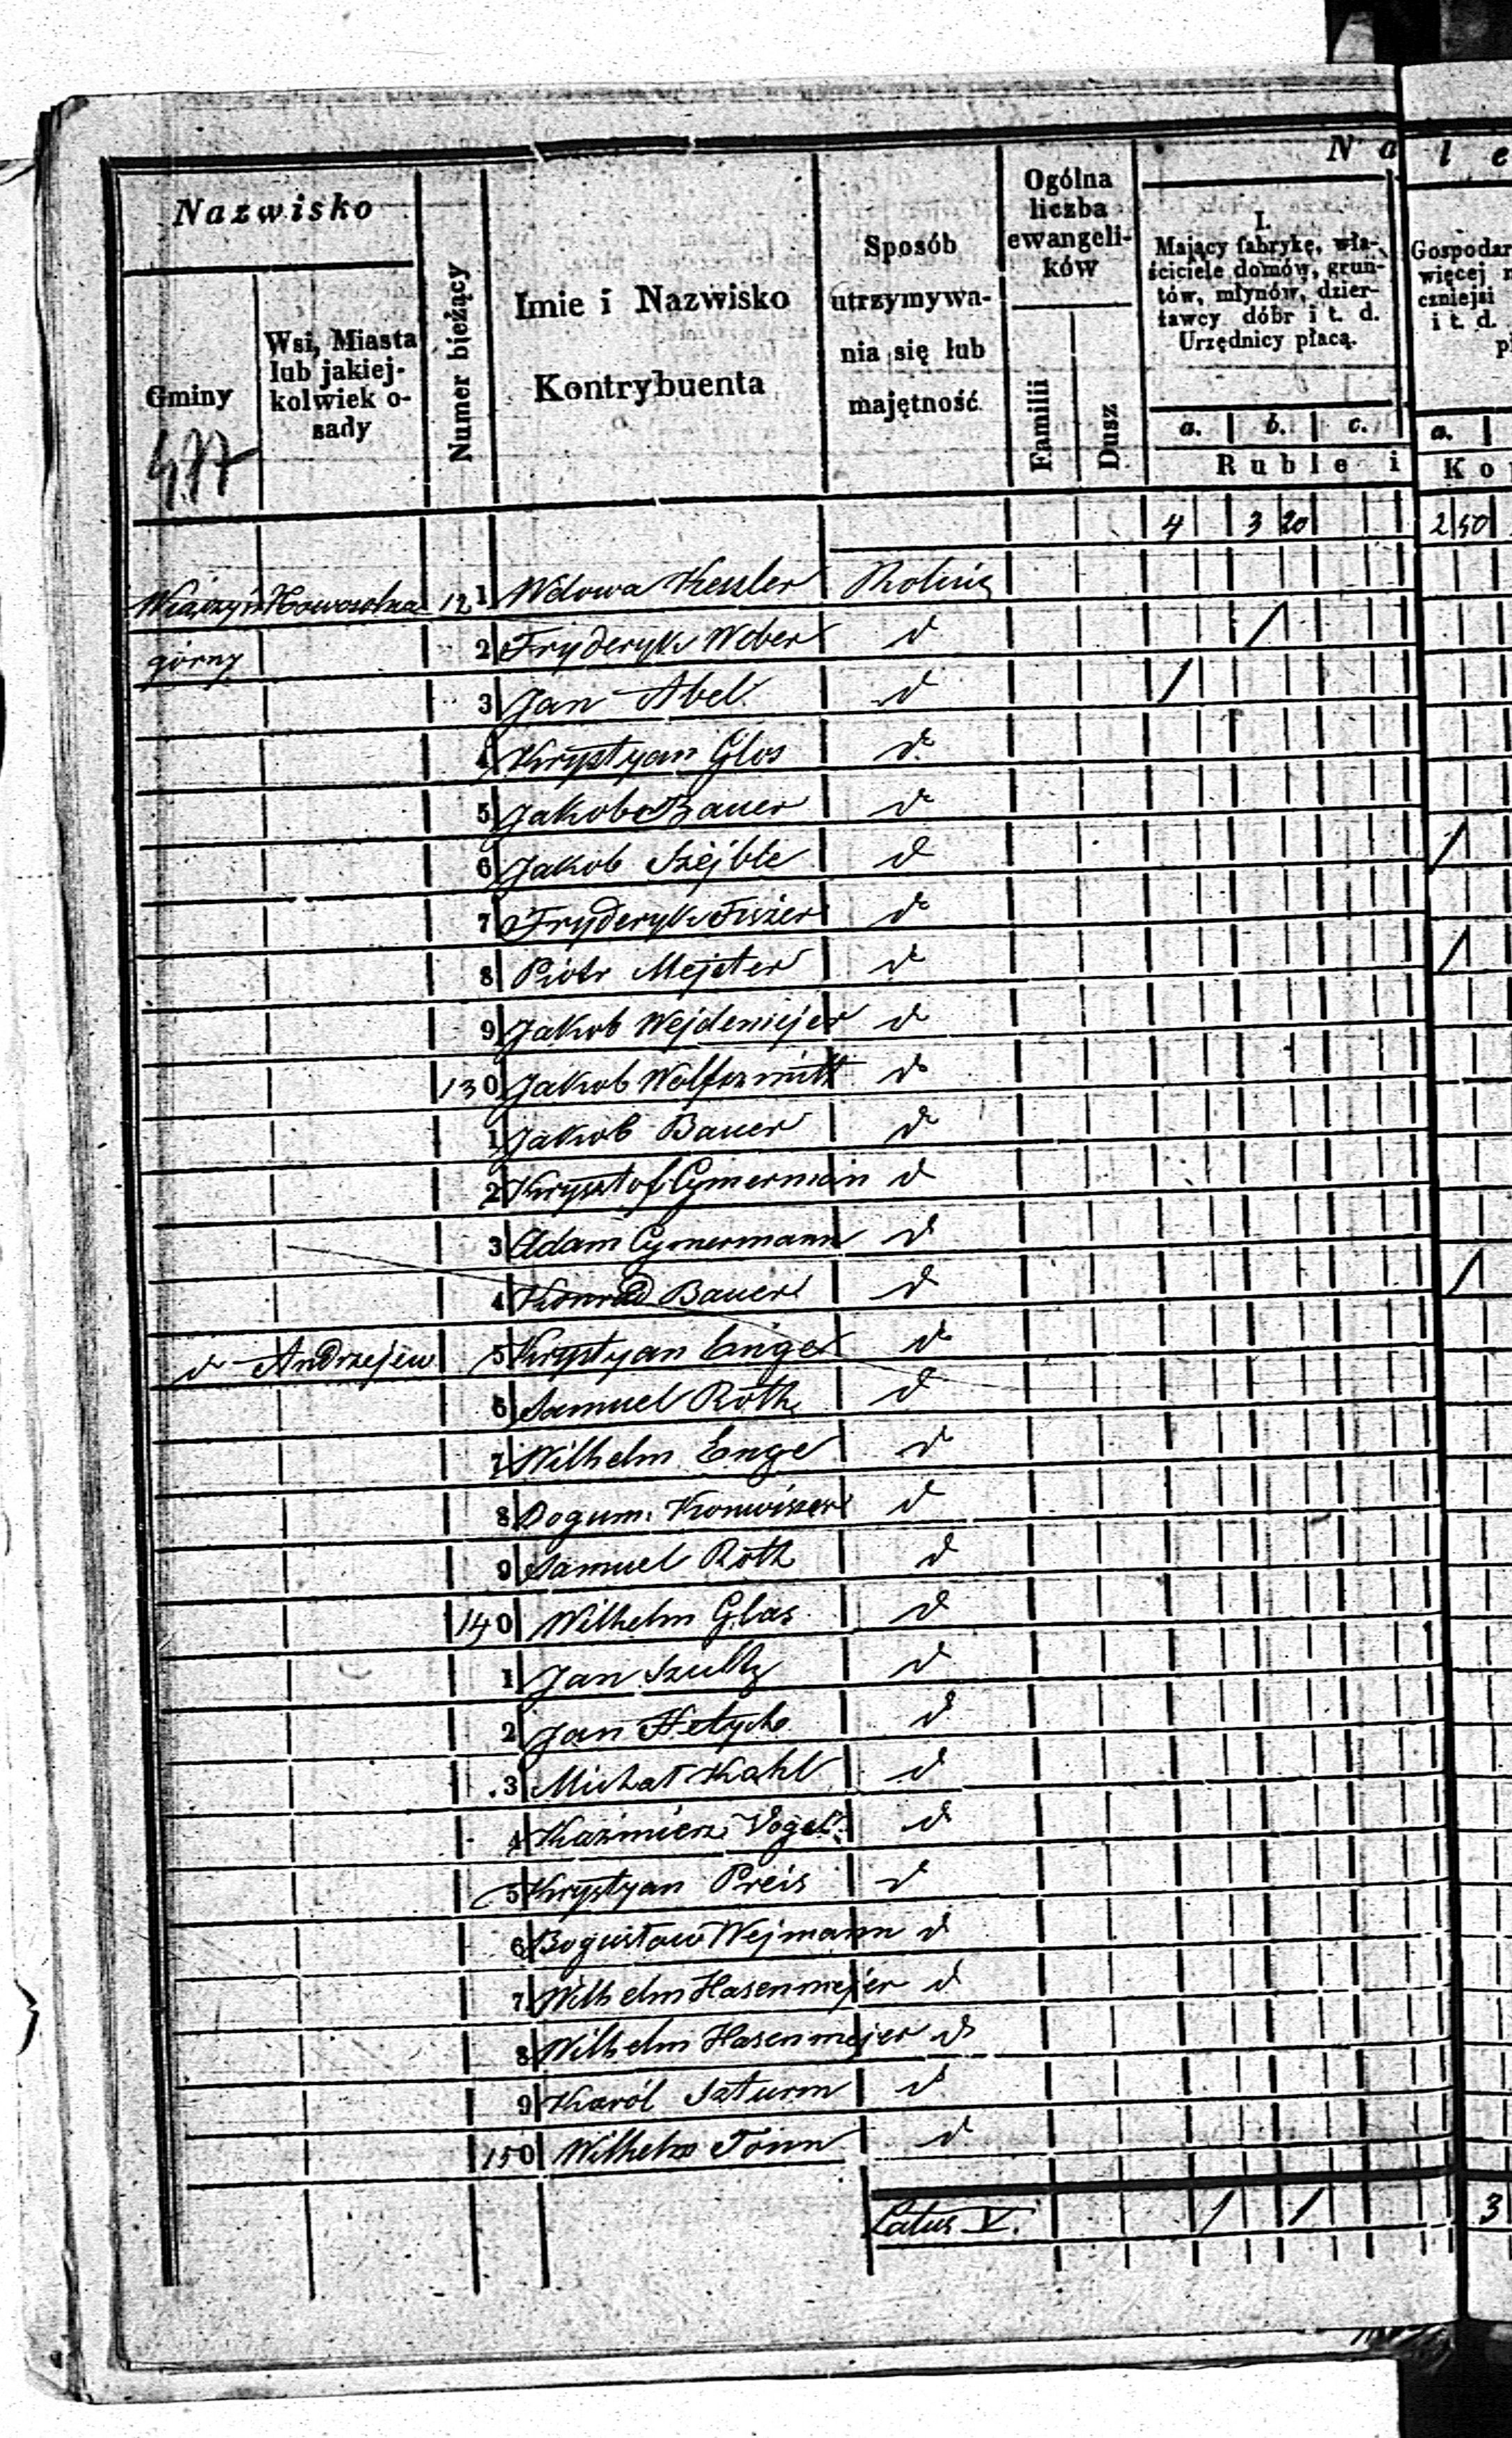 Nazwisko
Gminy
Wsi, Miasta
lub jakiej-
kolwiek o-
sady
Numer bieżący
Imie i Nazwisko
Kontrybuenta
Sposób
utrzymywa-
nia się lub
majętność
Ogólna
liczba
ewangeli-
ków
Familii
Dusz
N a l e
I.
Mający fabrykę, wła-
ściciele domów, grun-
tów, młynów, dzier-
żawcy dóbr i t. d.
Urzędnicy płacą.
a. b. c.
Ruble i
Gospodar
więcej
czniejsi
i t. d.
a.
Ko
4 3 20 2 50
Wiączyń Nowosolna 12 1 Wdowa Kessler Rolnic
górny 2 Fryderyk Weber d /
3 Jan Abel d /
4 Krystyan Glos d
5 Jakob Bauer d
6 Jakob Szejble d /
7 Fryderyk Fiszer d
8 Piotr Mejster d /
9 Jakob Wejdemejer d
130 Jakob Wolfszmitt d
1 Jakob Bauer d
2 Krysztof Cymerman d
3 Adam Cymermann d
4 Konrad Bauer d /
d Andrzejew 5 Krystyan Enge d
6 Samuel Roth d
7 Wilhelm Enge d
8 Bogum. Konwiszer d
9 Samuel Roth d
140 Wilhelm Glas d
1 Jan Szultz d
2 Jan d
3 Michał Kahl d
4 Kazimierz Vogel d
5 Krystyan Preis d
6 Bogusław Wejmann d
7 Wilhelm Hasenmejer d
8 Wilhelm Hasenmejer d
9 Karól Szturm d
150 Wilhelm Tonn d
Latus V. / / 3